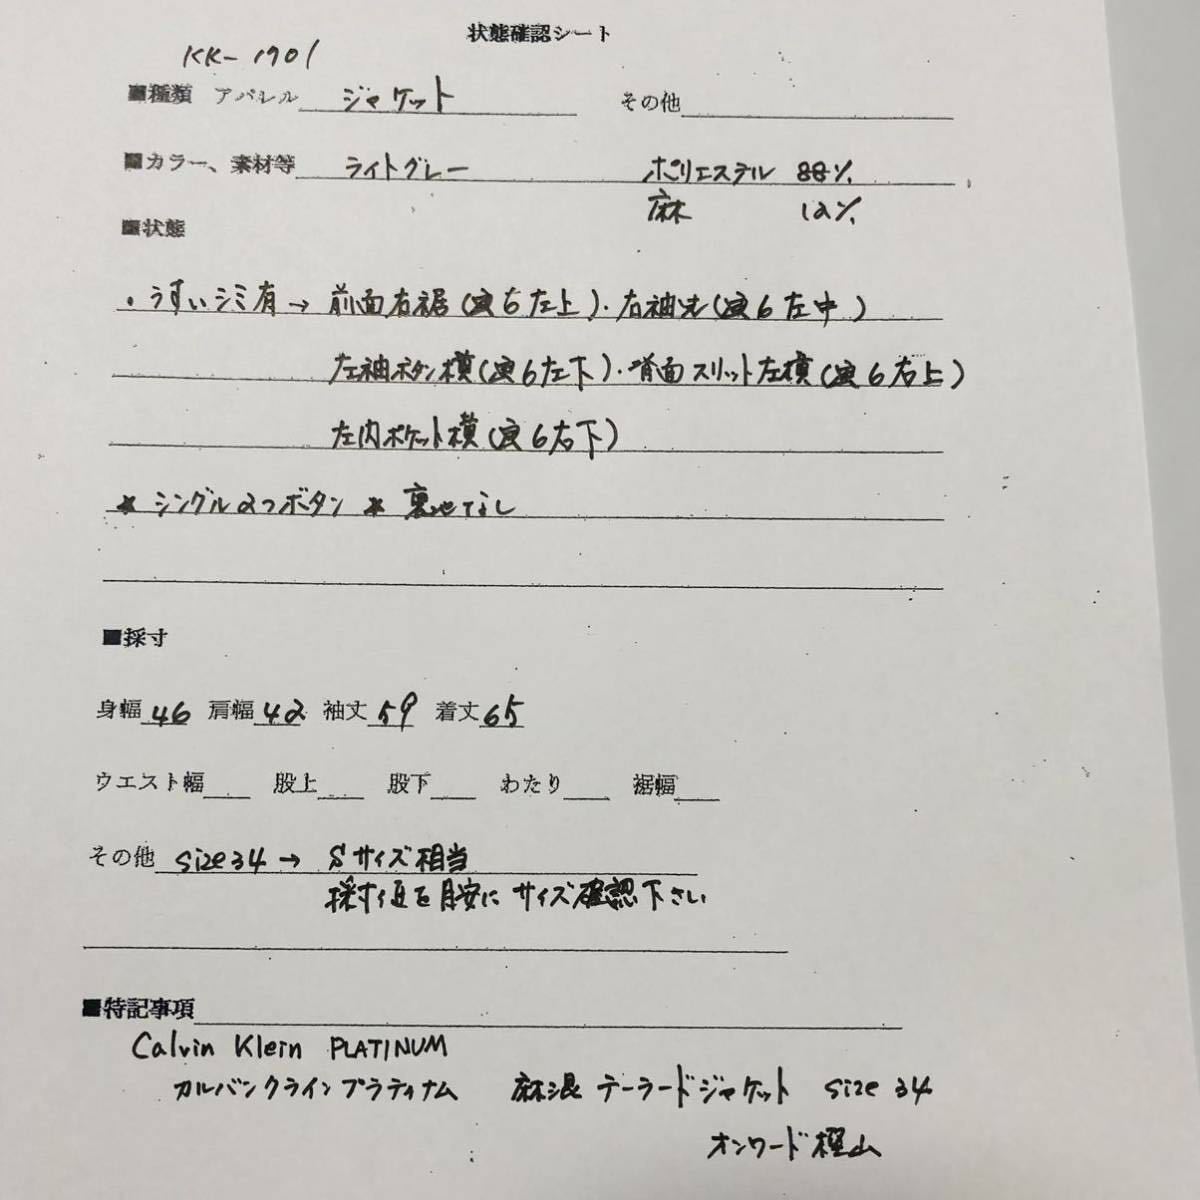 状態確認シート
KK-1901
■種類 アパレル ジャケット その他
■カラー、素材等 ライトグレー ポリエステル 88%
麻 12%
■状態
・うすいシミ有→前面右裾(写6左上)・右袖先(写6左中)
左袖ボタン横(写6左下)・背面スリット左横(写6右上)
左内ポケット横(写6右下)
* シングル2つボタン * 裏地なし
■採寸
身幅 46 肩幅 42 袖丈 59 着丈 65
ウエスト幅 股上 股下 わたり 裾幅
その他 size34→ Sサイズ相当
採寸値を目安にサイズ確認下さい
■特記事項
Calvin Klein PLATINUM
カルバンクラインプラティナム 麻混 テーラードジャケット size 34
オンワード樫山